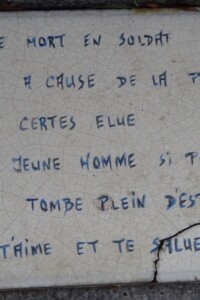 E MORT EN SOLDAT
A CAUSE DE LA
CERTES ELUE
JEUNE HOMME SI
TOMBE PLEIN D'EST
T'AIME ET TE SALUE